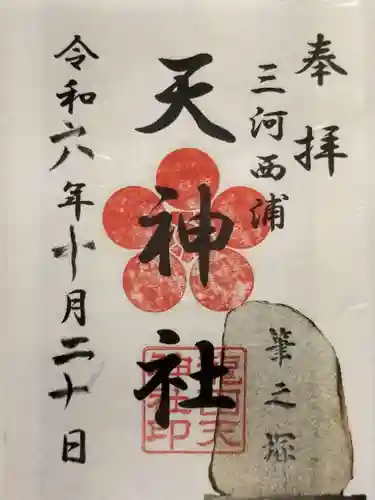 奉拝
三河西浦
天神社
龍田天神社印
筆之塚
令和六年十月二十日